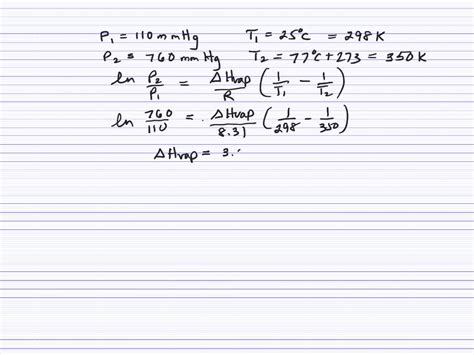 P₁ = 110 mmHg T₁ = 25°C = 298 K
P₂ = 760 mmHg T₂ = 77°C + 273 = 350 K
ln P₂/P₁ = ΔHvap/R (1/T₁ - 1/T₂)
ln 760/110 = ΔHvap/8.31 (1/298 - 1/350)
ΔHvap = 3.